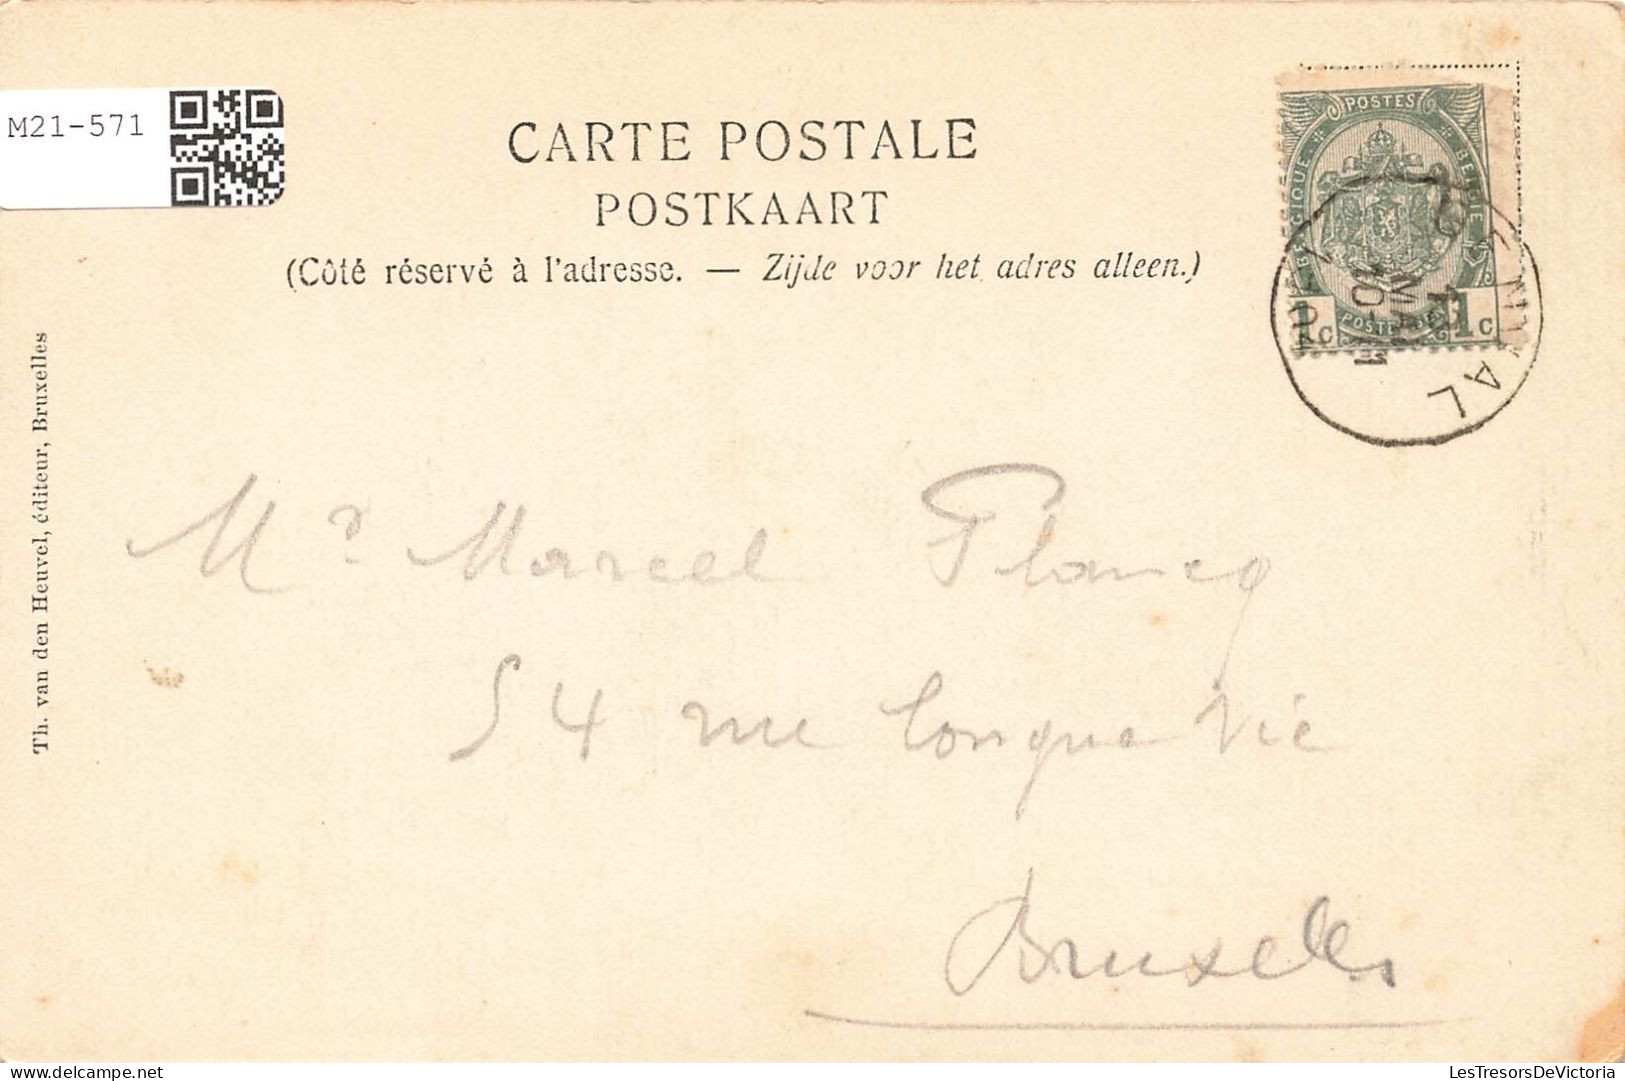 M21-571
CARTE POSTALE
POSTKAART
(Côté réservé à l'adresse. — Zijde voor het adres alleen.)
POSTES
BELGIQUE
BELGIË
POSTERIJEN
1c
1c
Th. van den Heuvel, éditeur, Bruxelles
Mr Marcel Plancq
54 rue Longue Vie
Bruxelles
LesTresorsDeVictoria